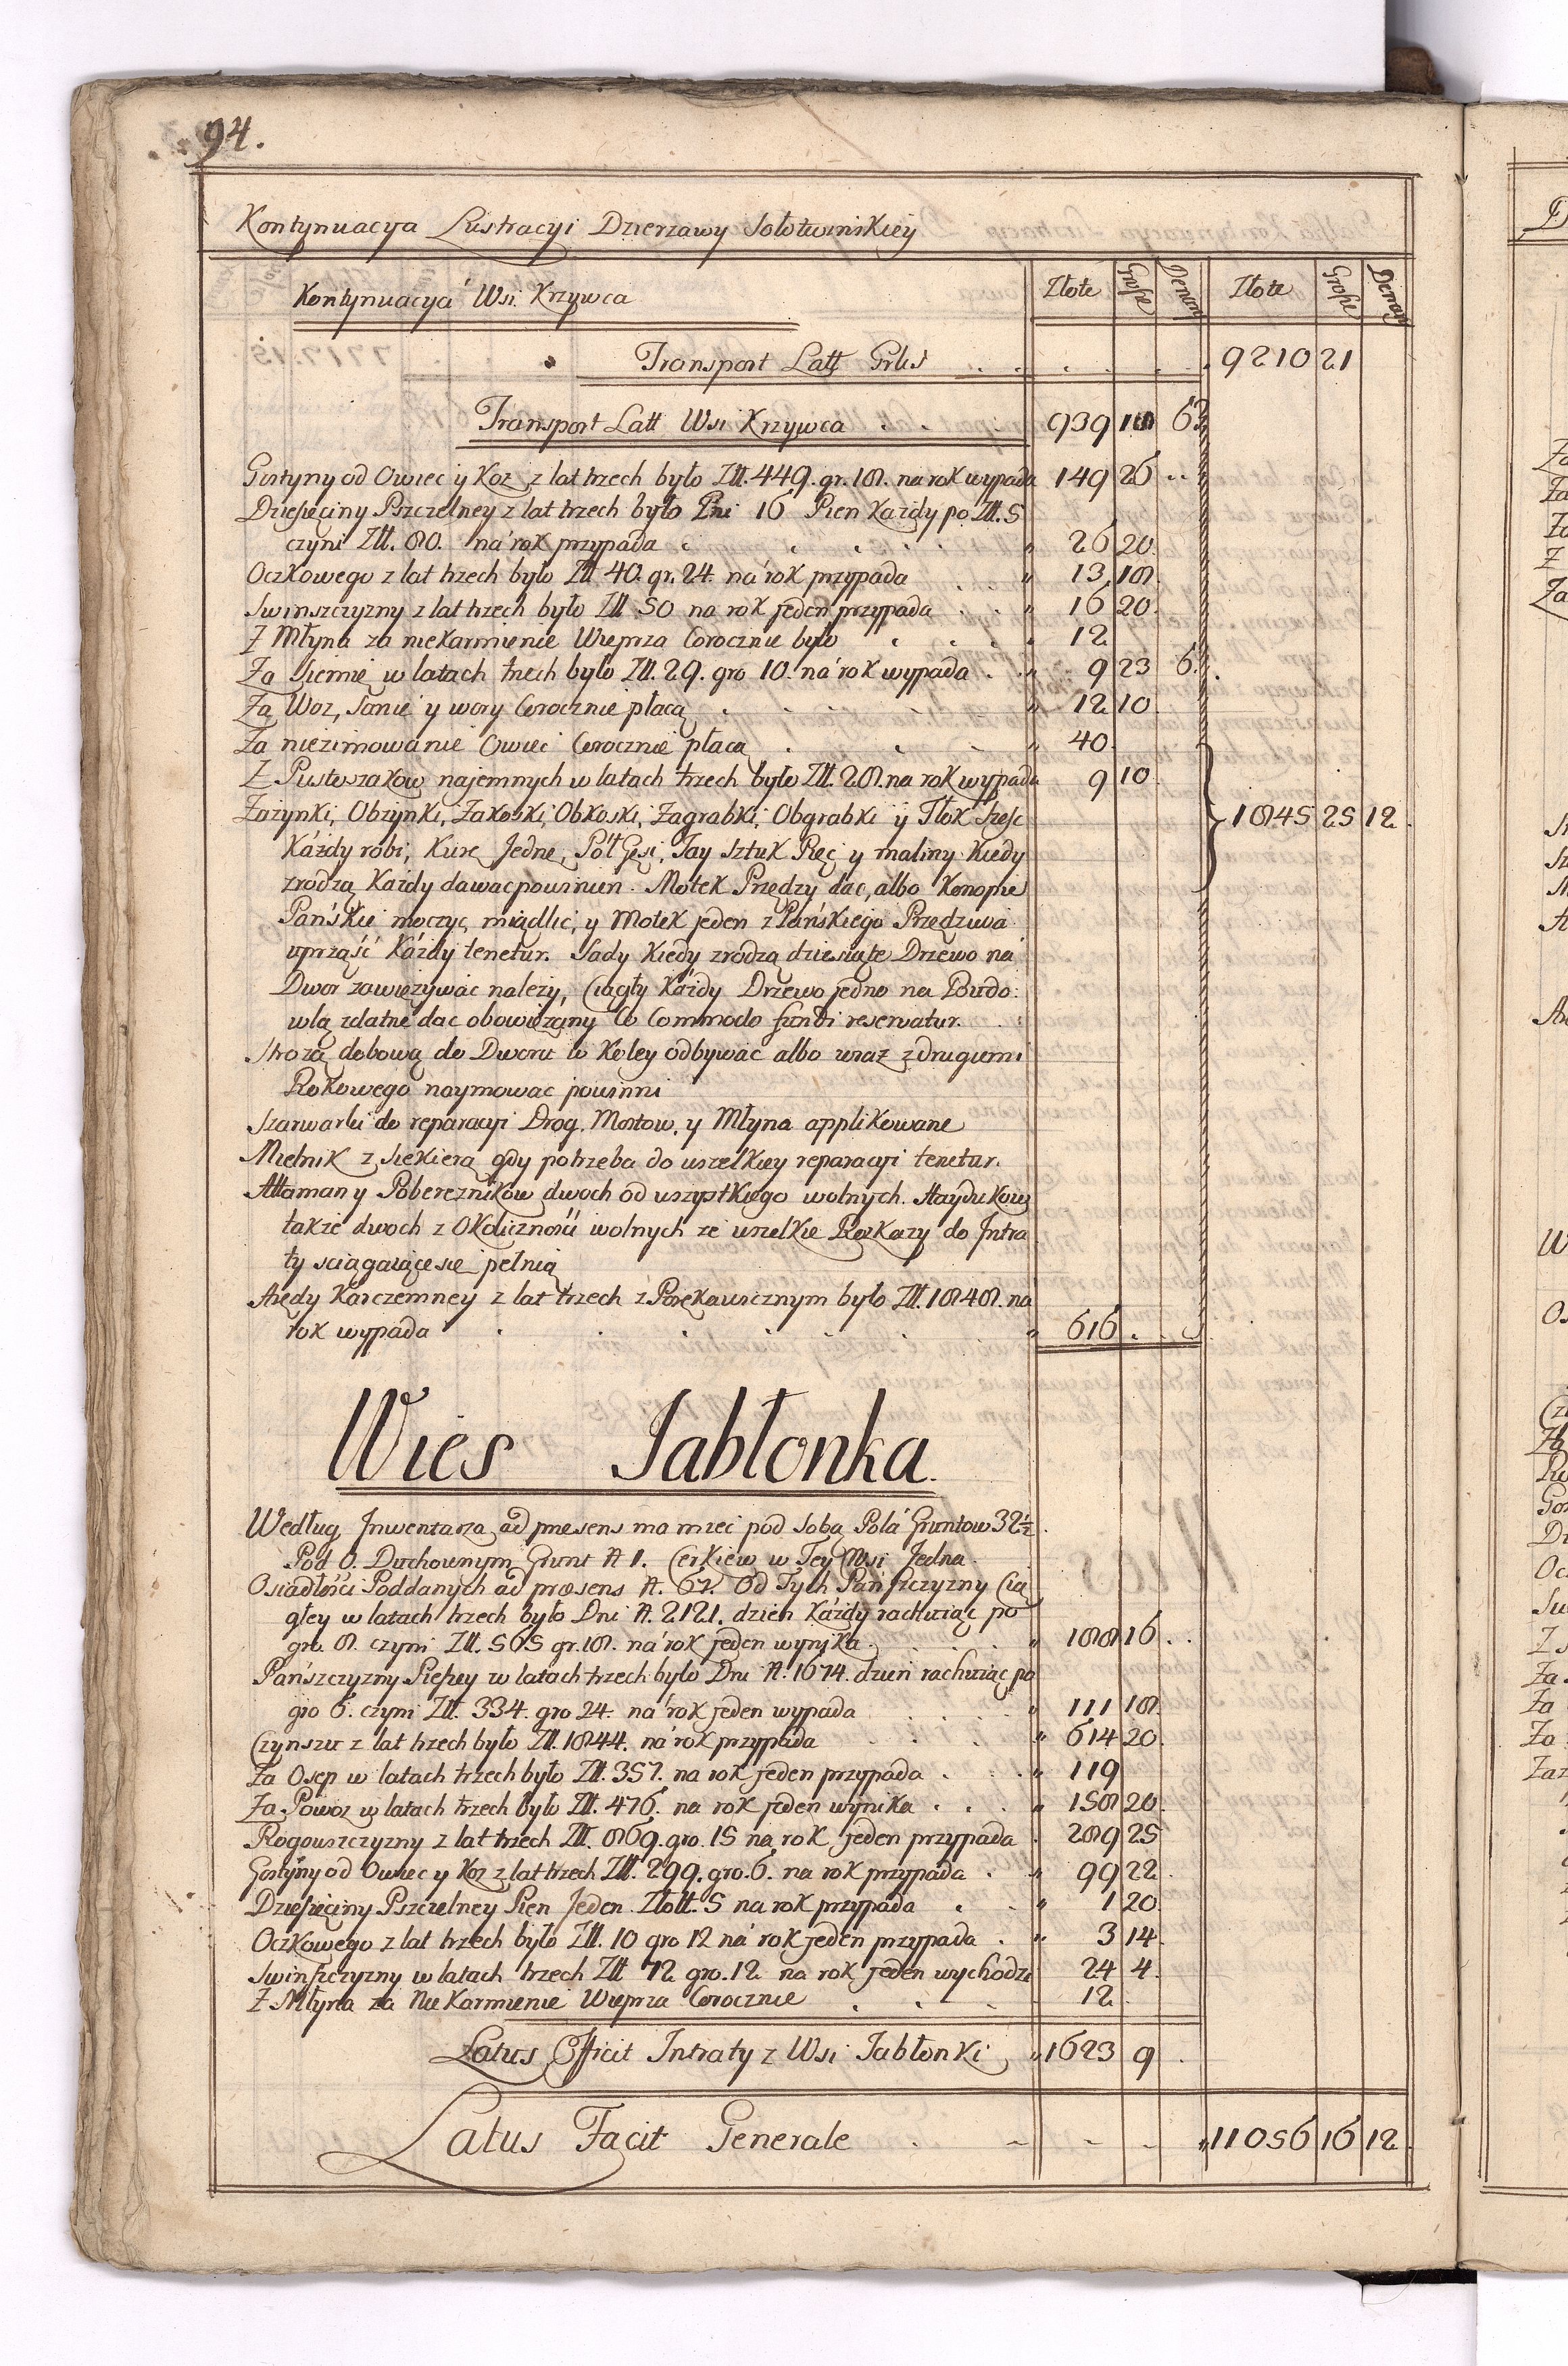 94.
Kontynuacya Lustracyi Dzierzawy Sołotwinskiey
Kontynuacya Wsi Krzywca Złote Grosze Denary Złote Grosze Denary
Transport Latt Grlis . . . . . 9210 21
Transport Latt Wsi Krzywca . . . 939 18 6
Gostyny od Owiec y Koz z lat trzech było Złł. 449. gr. 18. na rok wypada 149 26 . .
Dziesięciny Pszczelney z lat trzech było Pni 16 Pien Kazdy po Złł. 5
czyni Złł. 80. na rok przypada . . . . . " 26 20.
Oczkowego z lat trzech było Złł 40. gr. 24. na rok przypada . . " 13 18.
Swinszczyzny z lat trzech było Złł 50 na rok jeden przypada . . " 16 20.
Z Młyna za niekarmienie Wieprza Corocznie było . . . " 12
Za Siemie w latach trzech było Złł. 29. gro 10. na rok wypada . . " 9 23 6.
Za Woz, Sanie y wory Corocznie płacą . . . . " 12 10.
Za niezimowanie Owiec Corocznie płacą . . . " 40.
Z Pustoszakow najemnych w latach trzech było Złł. 28. na rok wypada 9 10.
Zazynki, Obzynki, Zakoski, Obkoski, Zagrabki, Obgrabki y Tłok Szesc 1845 25 12.
Kázdy robi, Kurę Jednę, Poł Gęsi, Jay Sztuk Pięc y maliny Kiedy
zrodzą Kazdy dawac powinien. Motek Przędzy dac, albo Konopie
Pańskie moczyc, miądlic, y Motek jeden z Pańskiego Przędziwa
uprząść Kázdy tenetur. Sady Kiedy zrodzą dziesiąte Drzewo na
Dwor zawięzywac nalezy, Ciągły Kázdy Drzewo jedno na Budo:
wlą zdatne dac obowięzany Co Commodo fundi reservatur. .
Strozą dobową do Dworu w Koley odbywac albo wraz z drugiemi
Rokowego naymowac powinni
Szarwarki do reparacyi Drog, Mostow, y Młyna applikowane
Mielnik z Siekierą gdy potrzeba do wszelkiey reparacyi tenetur.
Attaman y Poberezników dwoch od wszystkiego wolnych. Haydukow
takze dwoch z Okolicznosci wolnych ze wszelkie Rozkazy do Intra
ty sciągaiące sie pełnią
Arędy Karczemney z lat trzech z Porękawicznym było Złł. 1848. na
rok wypada . . . . . " 616 . .
Wies Jabłonka.
Według Inwentarza ad presens ma miec pod Sobą Pola Gruntow 32½.
Pod O. Duchownym Grunt N 1. Cerkiew w Tey Wsi Jedna.
Osiadłości Poddanych ad præsens N. 67. Od Tych Pańszczyzny Cią
głey w latach trzech było Dni N. 2121. dzien Kázdy rachuiąc po
gro. 8. czyni Złł. 565 gr. 18. na rok jeden wynika . . . . " 188 16 . .
Pańszczyzny Pieszey w latach trzech było Dni N. 1674. dzień rachuiąc po
gro 6. czyni Złł. 334. gro 24. na rok jeden wypada . . . " 111 18.
Czynszu z lat trzech było Złł. 1844. na rok przypada . . . " 614 20.
Za Osęp w latach trzech było Złł. 357. na rok jeden przypada . . " 119
Za Powoz w latach trzech było Złł. 476. na rok jeden wynika . . . " 158 20.
Rogowszczyzny z lat trzech Złł. 869. gro. 15 na rok jeden przypada . 289 25
Gostyny od Owiec y Koz z lat trzech Złł. 299. gro. 6. na rok przypada . " 99 22.
Dziesięciny Pszczelney Pien Jeden Złott. 5 na rok przypada . . " 1 20.
Oczkowego z lat trzech było Złł. 10 gro 12 na rok jeden przypada . " 3 14.
Swinszczyzny w latach trzech Złł 72 gro. 12 na rok jeden wychodzi 24 4.
Z Młyna za Nie Karmienie Wieprza Corocznie . . . 12.
Latus Efficit Intraty z Wsi Jabłonki " 1623 9 .
Latus Facit Generale . . . . . " 11056 16 12.